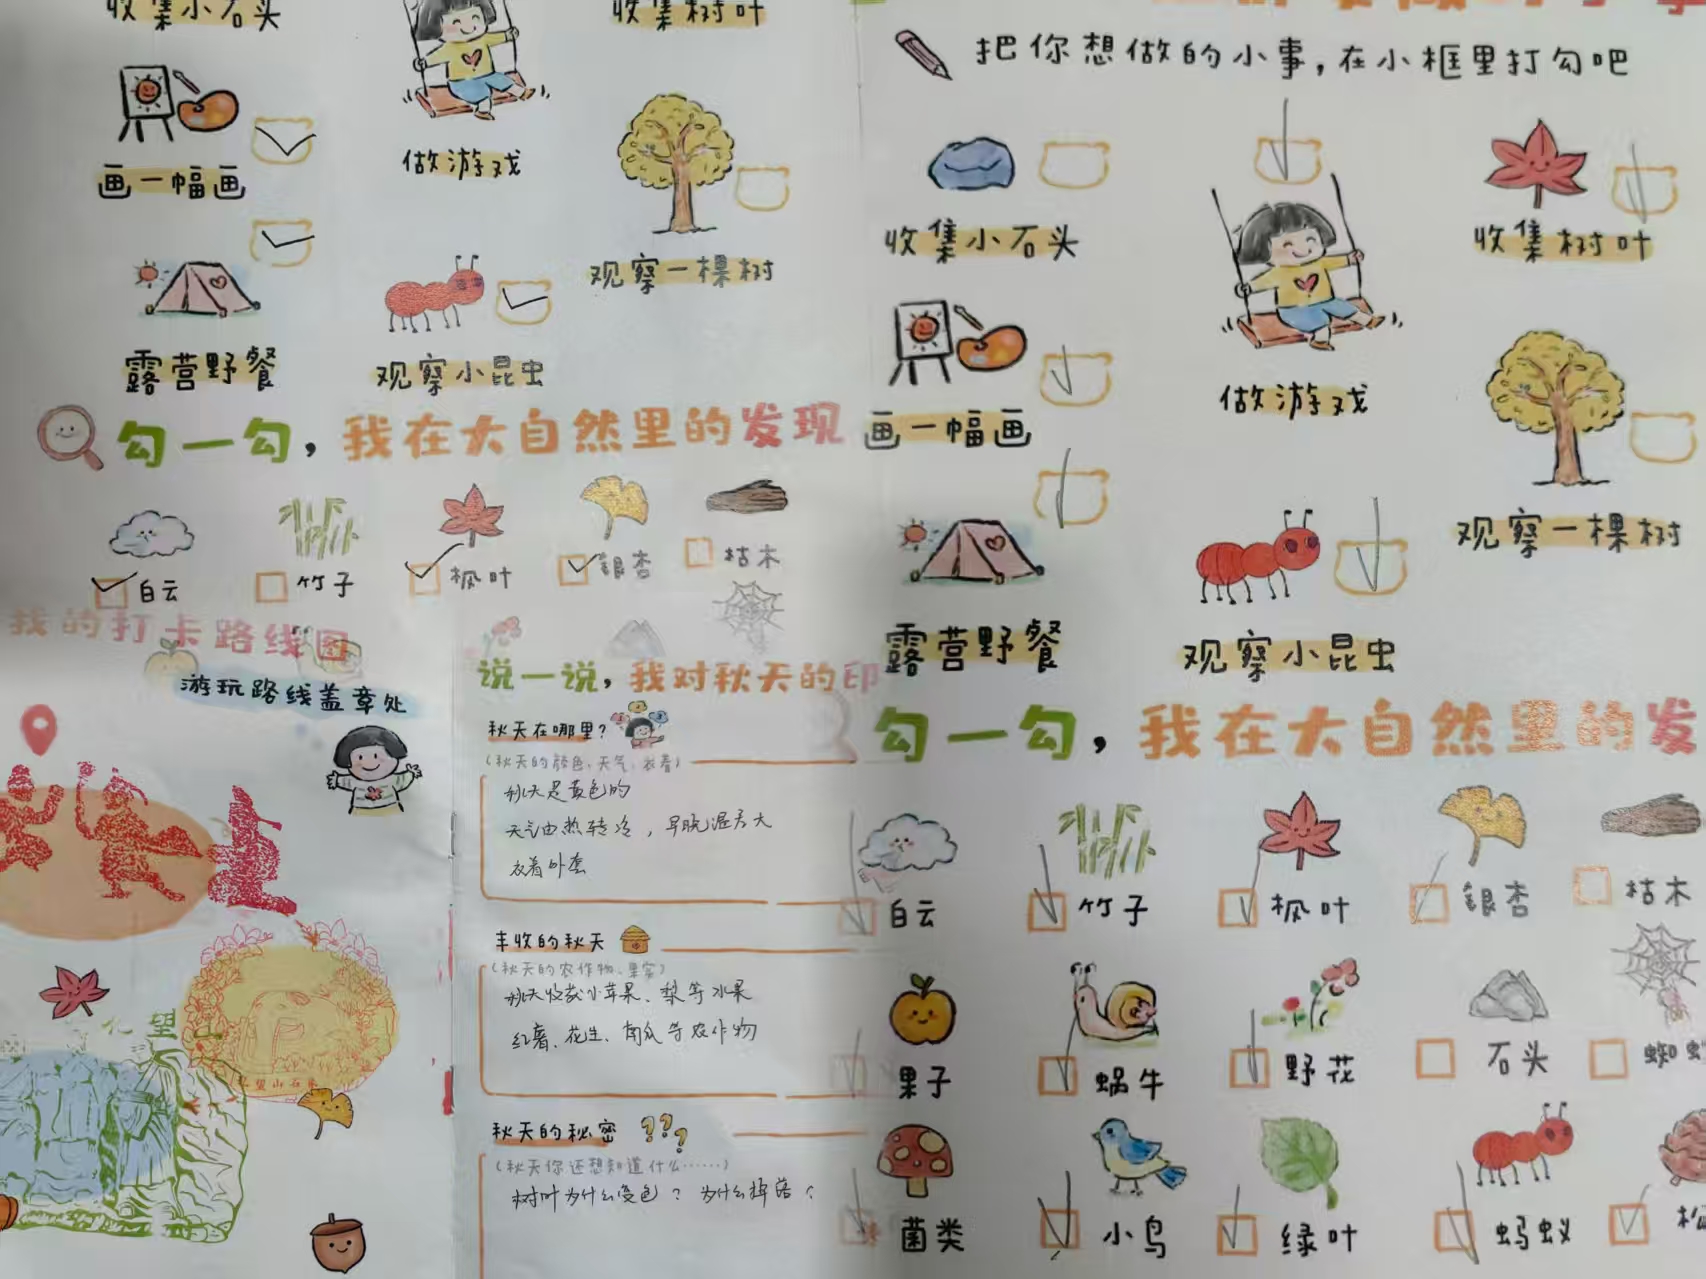 收集小石头
收集树叶
画一幅画
做游戏
观察一棵树
露营野餐
观察小昆虫
勾一勾，我在大自然里的发现
白云
竹子
枫叶
银杏
枯木
我的打卡路线图
游玩路线盖章处
说一说，我对秋天的印
秋天在哪里？
（秋天的颜色、天气、衣着）
秋天是黄色的
天气由热转冷，早晚温差大
衣着外套
丰收的秋天
（秋天的农作物、果实）
秋天收获小苹果、梨等水果
红薯、花生、南瓜等农作物
秋天的秘密 ？？？
（秋天你还想知道什么……）
树叶为什么变色？为什么掉落？
把你想做的小事，在小框里打勾吧
收集小石头
收集树叶
画一幅画
做游戏
观察一棵树
露营野餐
观察小昆虫
勾一勾，我在大自然里的发
白云
竹子
枫叶
银杏
枯木
果子
蜗牛
野花
石头
蜘
菌类
小鸟
绿叶
蚂蚁
松